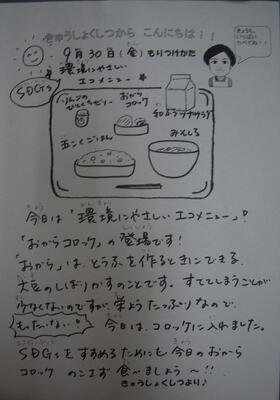 きゅうしょくしつから こんにちは！！
9月30日(金)もりつけかた
きょうも、いっぱいたべてね！！
環境にやさしい
エコメニュー
SDGs
りんごのひとくちゼリー
おからコロッケ
和ふうツナサラダ
五こくごはん
みそしる
今日は「環境にやさしい エコメニュー」！
「おからコロッケ」の登場です！
「おから」は、とうふを作るときにできる、
大豆のしぼりかすのことです。すててしまうことが
少なくないのですが、栄ようたっぷりなので、
もったいない！ 今日は、コロッケに入れました。
SDGsをすすめるためにも今日のおから
コロッケ のこさず食べましょう～！！
きゅうしょくしつより♪